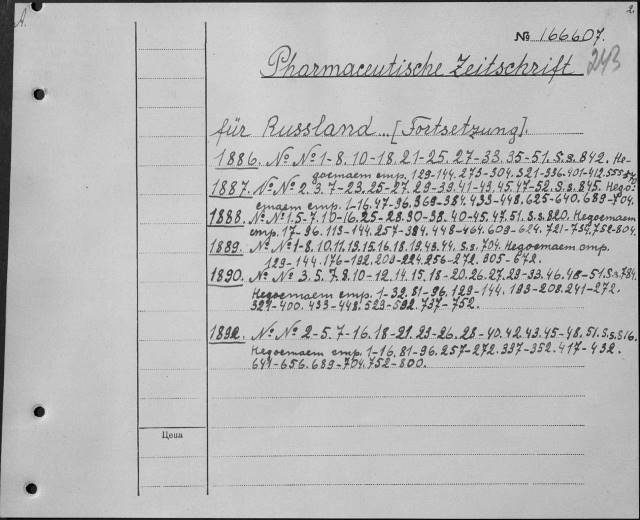 A.
2.
№ 166607.
243
Pharmaceutische Zeitschrift
für Russland...[Fortsetzung].
1886. № № 1-8. 10-18. 21-25. 27-33. 35-51. S.s. 842. Не-
достает стр. 129-144. 273-304. 321-336. 401-412. 555-
1887. № № 2. 3. 7-23. 25-27. 29-39. 41-43. 45. 47-52. S.s. 845. Недо-
стает стр. 1-16. 47-96. 369-384. 433-448. 625-640. 689-704.
1888. № № 1. 5-7. 10-16. 25-28. 30-38. 40-45. 47. 51. S.s. 820. Недостает
стр. 17-96. 113-144. 257-384. 448-464. 609-624. 721-736. 752-804.
1889. № № 1-8. 10. 11. 13. 15. 16. 18. 19. 43. 44. S.s. 704. Недостает стр.
129-144. 176-192. 209-224. 256-272. 305-672.
1890. № № 3. 5. 7. 8. 10-12. 14. 15. 18-20. 26. 27. 29-33. 46. 48-51. S.s. 784.
Недостает стр. 1-32. 81-96. 129-144. 193-208. 241-272.
321-400. 433-448. 529-592. 737-752.
1892. № № 2-5. 7-16. 18-21. 23-26. 28-40. 42. 43. 45-48. 51. S.s. 816.
Недостает стр. 1-16. 81-96. 257-272. 337-352. 417-432.
641-656. 689-704. 752-800.
Цена